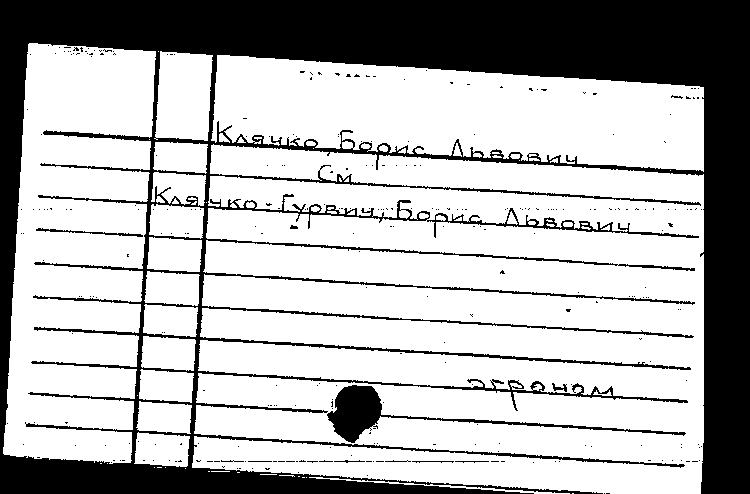 Клячко, Борис Львович
См
Клячко-Гурвич, Борис Львович
агроном